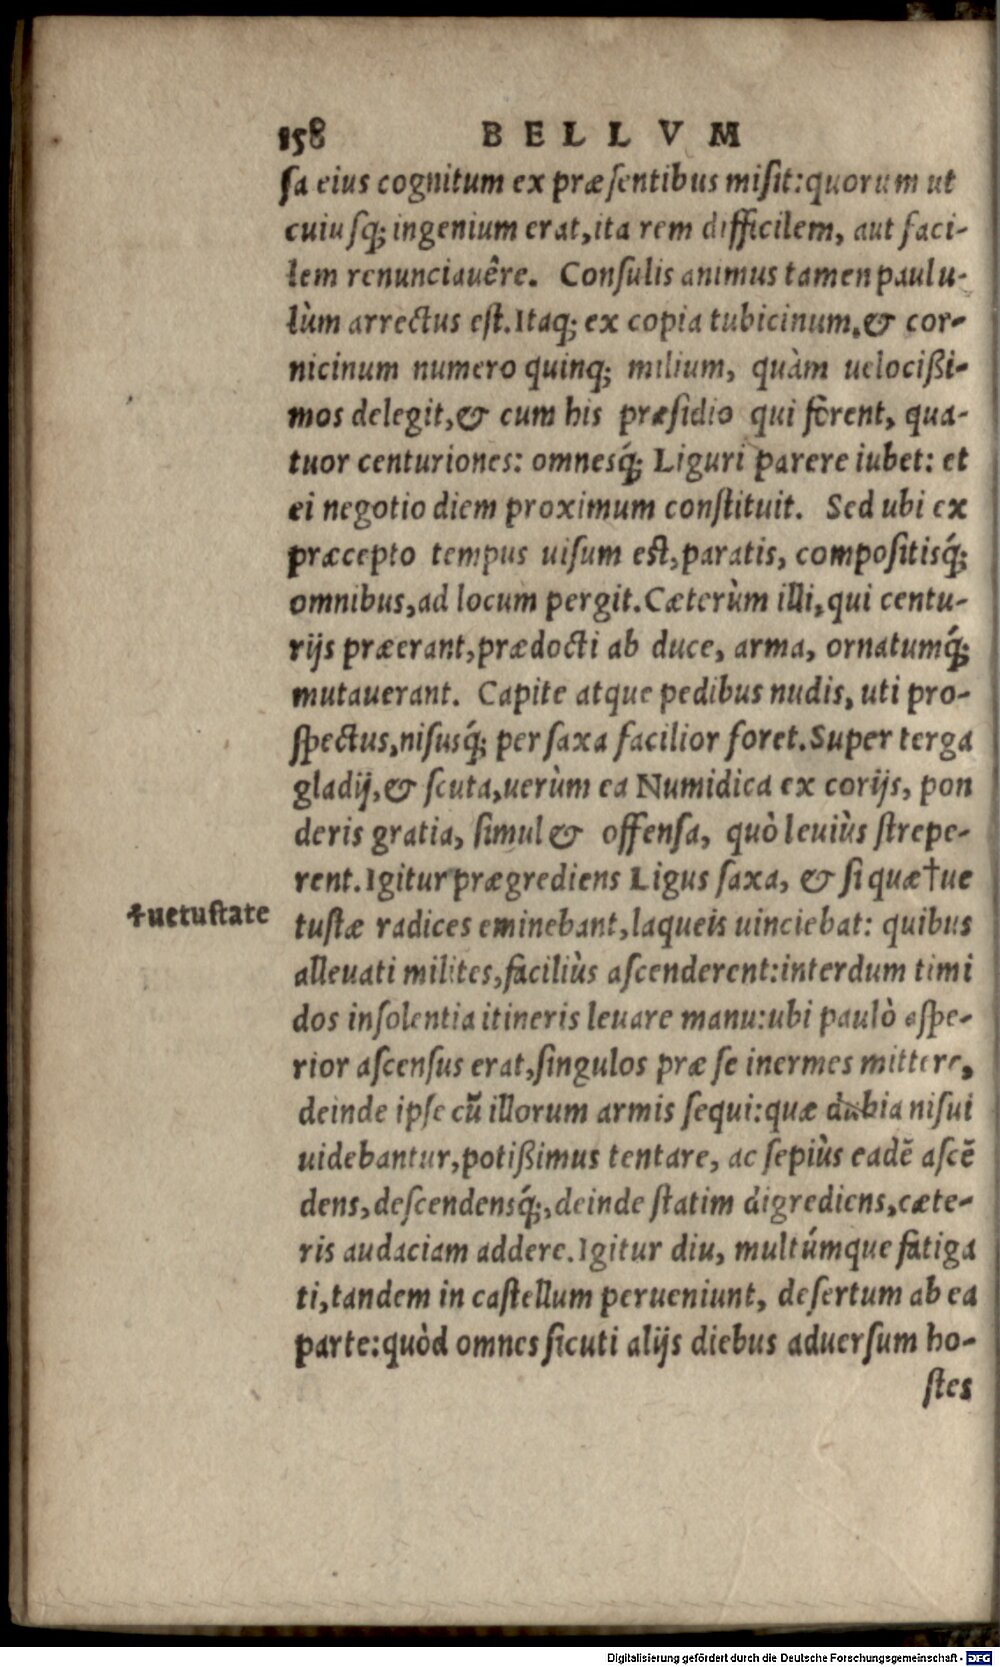 158 BELLVM
sa eius cognitum ex præsentibus misit:quorum ut
cuiusq; ingenium erat,ita rem difficilem, aut faci-
lem renunciauêre. Consulis animus tamen paulu-
lùm arrectus est.Itaq; ex copia tubicinum,& cor-
nicinum numero quinq; milium, quàm uelocißi-
mos delegit,& cum his præsidio qui forent, qua-
tuor centuriones: omnesq́; Liguri parere iubet: et
ei negotio diem proximum constituit. Sed ubi ex
præcepto tempus uisum est,paratis, compositisq́;
omnibus,ad locum pergit.Cæterùm illi,qui centu-
rijs præerant,prædocti ab duce, arma, ornatumq́;
mutauerant. Capite atque pedibus nudis, uti pro-
spectus,nisusq́; per saxa facilior foret.Super terga
gladij,& scuta,uerùm ea Numidica ex corijs, pon
deris gratia, simul & offensa, quò leuiùs strepe-
rent.Igitur prægrediens Ligus saxa, & si quæ†ue
†uetustate
tustæ radices eminebant,laqueis uinciebat: quibus
alleuati milites,faciliùs ascenderent:interdum timi
dos insolentia itineris leuare manu:ubi paulò aspe-
rior ascensus erat,singulos præ se inermes mittere,
deinde ipse cũ illorum armis sequi:quæ dubia nisui
uidebantur,potißimus tentare, ac sepiùs eadē ascē
dens,descendensq́;,deinde statim digrediens,cæte-
ris audaciam addere.Igitur diu, multúmque fatiga
ti,tandem in castellum perueniunt, desertum ab ea
parte:quòd omnes sicuti alijs diebus aduersum ho-
stes
Digitalisierung gefördert durch die Deutsche Forschungsgemeinschaft - DFG